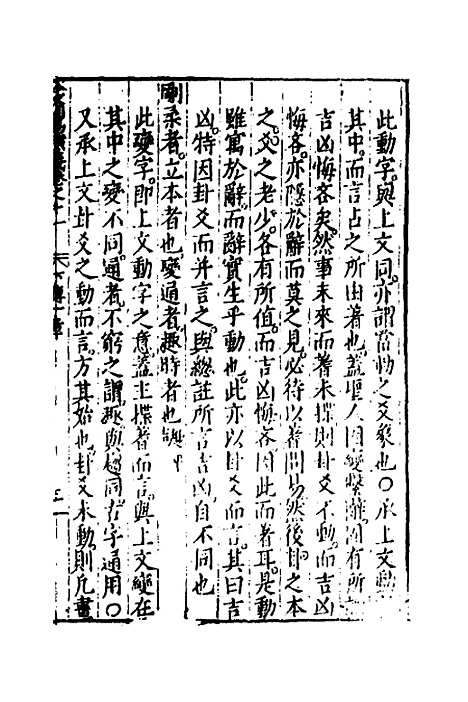 此動字與上文同亦謂當動之爻象也○承上文動
其中而言占之所由著也蓋聖人因變繫辭固有所
吉凶悔吝矣然事未來而蓍未揲則卦爻不動而吉凶
悔吝亦隱於辭而莫之見必待以蓍問易然後卦之本
之爻之老少各有所值而吉凶悔吝因此而著耳是動
雖寓於辭而辭實生乎動也此亦以卦爻而言其曰吉
凶特因卦爻而并言之與總註所言吉凶自不同也
剛柔者立本者也變通者趣時者也
此變字即上文動字之意蓋主揲蓍而言與上文變在
其中之變不同通者不窮之謂趣與趨同古字通用○
又承上文卦爻之動而言方其始也卦爻未動則凡畫